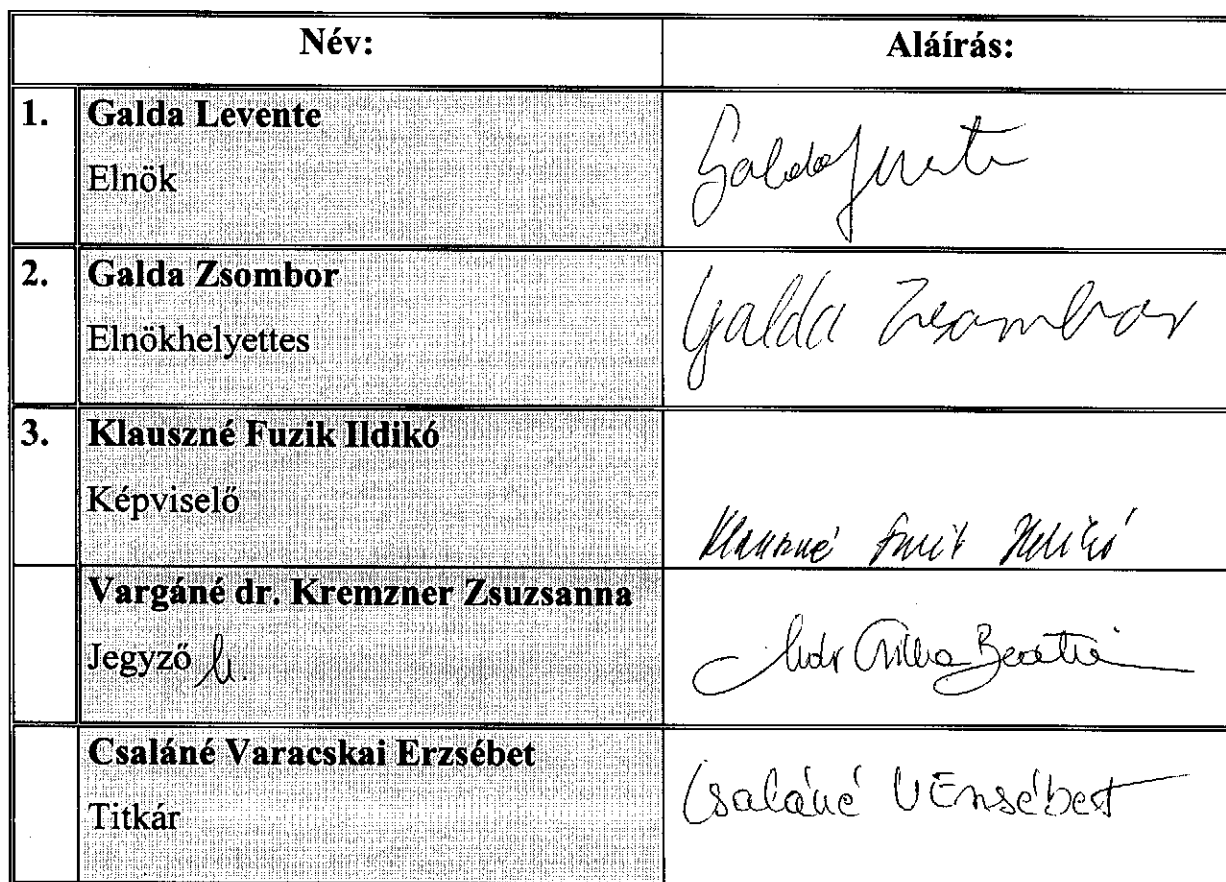 Név: Aláírás:
1. Galda Levente
Elnök
Galda Levente
2. Galda Zsombor
Elnökhelyettes
Galda Zsombor
3. Klauszné Fuzik Ildikó
Képviselő
Klauszné Fuzik Ildikó
Vargáné dr. Kremzner Zsuzsanna
Jegyző
Csaláné Varacskai Erzsébet
Titkár
Csaláné VErzsébet